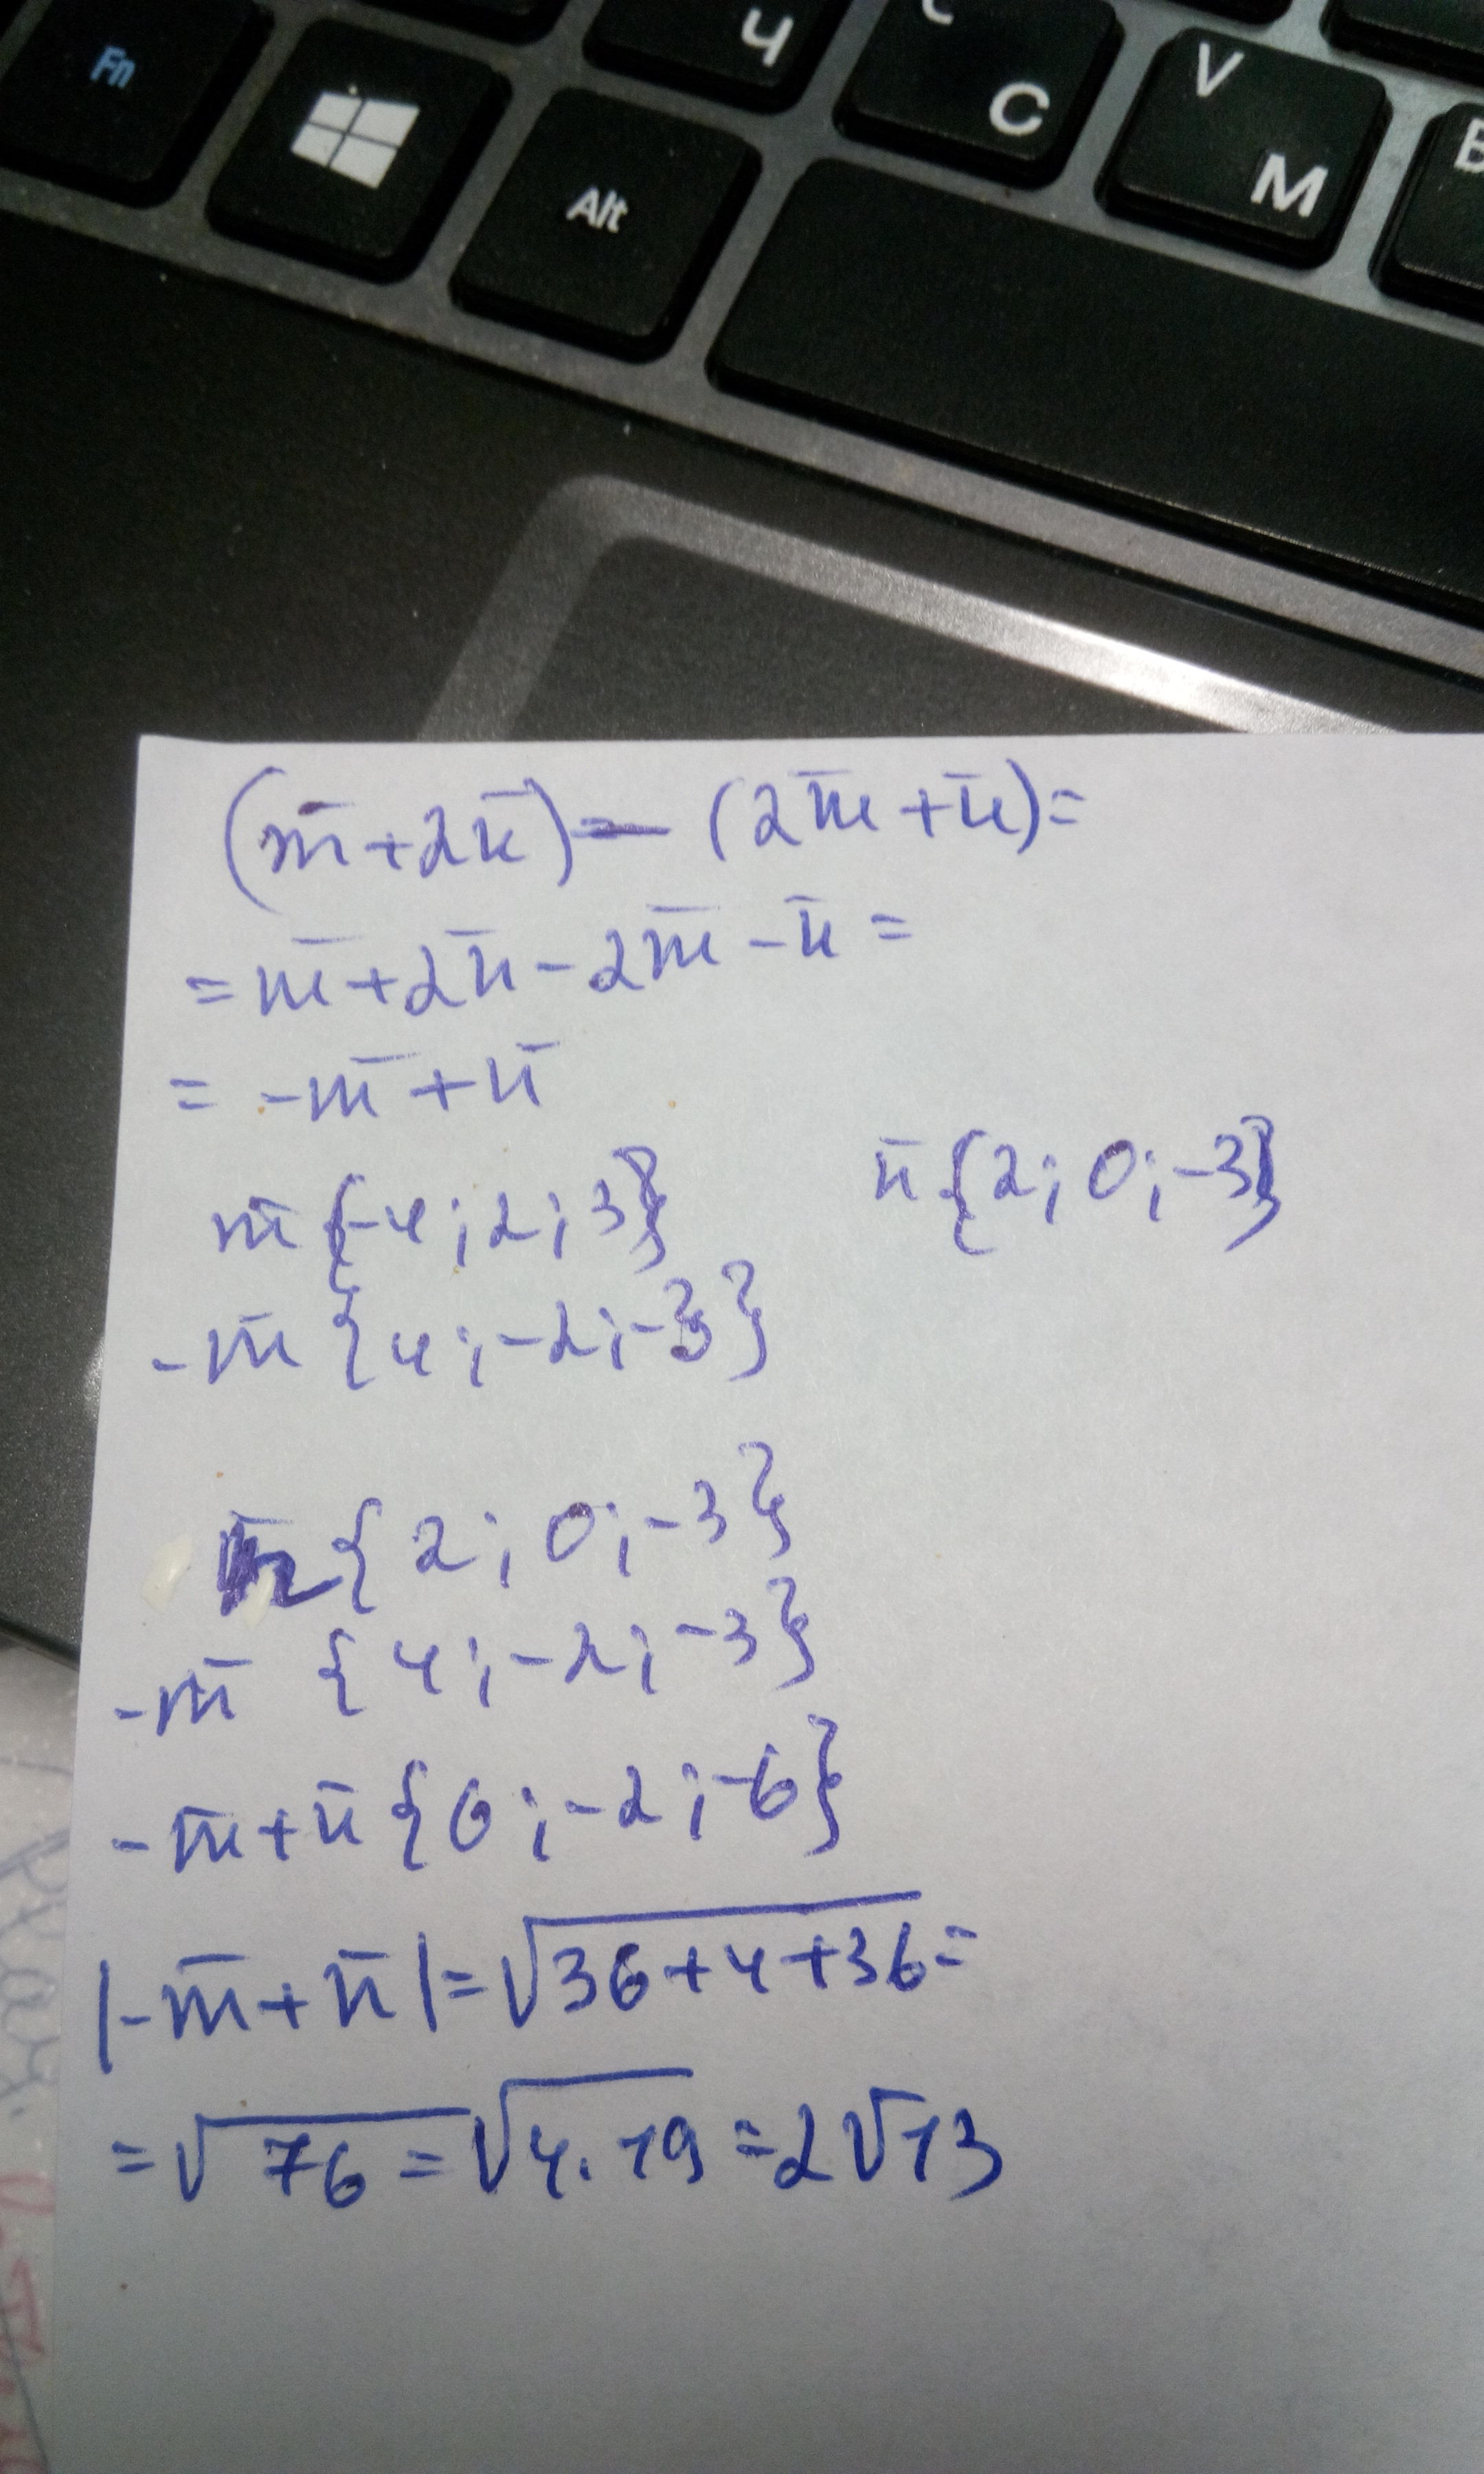 Fn Alt Ч C V M B
(m̄+2n̄)-(2m̄+n̄)=
=m̄+2n̄-2m̄-n̄=
=-m̄+n̄
m̄{-4;2;3} n̄{2;0;-3}
-m̄{4;-2;-3}
n̄{2;0;-3}
-m̄{4;-2;-3}
-m̄+n̄{6;-2;-6}
|-m̄+n̄|=√36+4+36=
=√76=√4.19=2√13